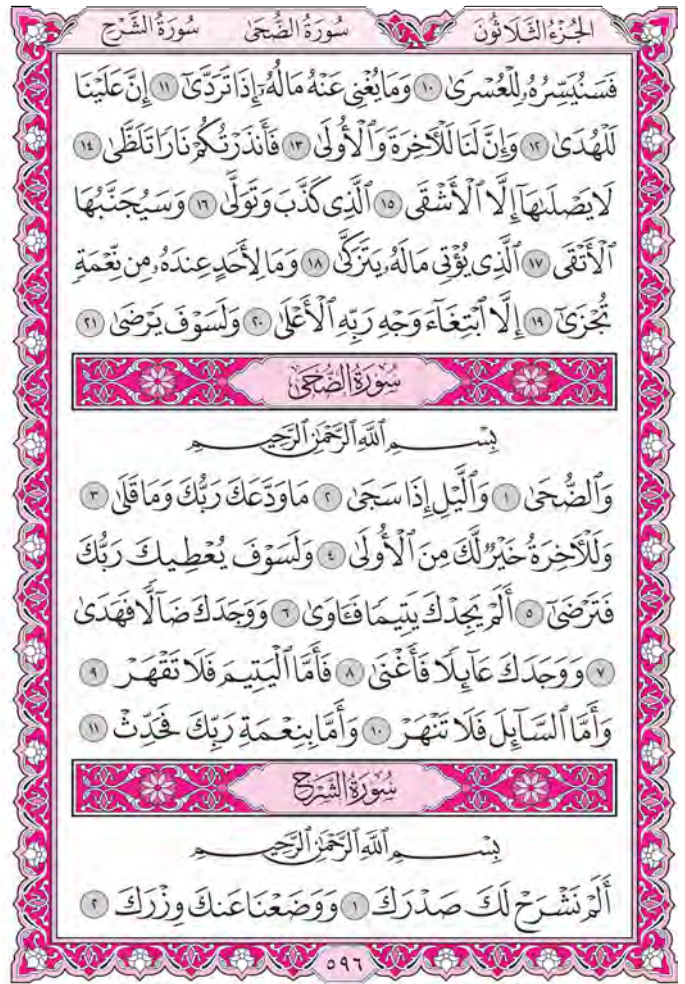 الجُزْءُ الثَّلَاثُونَ سُورَةُ الضُّحَىٰ سُورَةُ الشَّرْحِ
فَسَنُيَسِّرُهُۥ لِلْعُسْرَىٰ ١٠ وَمَا يُغْنِى عَنْهُ مَالُهُۥٓ إِذَا تَرَدَّىٰٓ ١١ إِنَّ عَلَيْنَا
لَلْهُدَىٰ ١٢ وَإِنَّ لَنَا لَلْـَٔاخِرَةَ وَٱلْأُولَىٰ ١٣ فَأَنذَرْتُكُمْ نَارًا تَلَظَّىٰ ١٤
لَا يَصْلَىٰهَآ إِلَّا ٱلْأَشْقَى ١٥ ٱلَّذِى كَذَّبَ وَتَوَلَّىٰ ١٦ وَسَيُجَنَّبُهَا
ٱلْأَتْقَى ١٧ ٱلَّذِى يُؤْتِى مَالَهُۥ يَتَزَكَّىٰ ١٨ وَمَا لِأَحَدٍ عِندَهُۥ مِن نِّعْمَةٍ
تُجْزَىٰٓ ١٩ إِلَّا ٱبْتِغَآءَ وَجْهِ رَبِّهِ ٱلْأَعْلَىٰ ٢٠ وَلَسَوْفَ يَرْضَىٰ ٢١
سُورَةُ الضُّحَىٰ
بِسْمِ ٱللَّهِ ٱلرَّحْمَٰنِ ٱلرَّحِيمِ
وَٱلضُّحَىٰ ١ وَٱلَّيْلِ إِذَا سَجَىٰ ٢ مَا وَدَّعَكَ رَبُّكَ وَمَا قَلَىٰ ٣
وَلَلْـَٔاخِرَةُ خَيْرٌ لَّكَ مِنَ ٱلْأُولَىٰ ٤ وَلَسَوْفَ يُعْطِيكَ رَبُّكَ
فَتَرْضَىٰٓ ٥ أَلَمْ يَجِدْكَ يَتِيمًا فَـَٔاوَىٰ ٦ وَوَجَدَكَ ضَآلًّا فَهَدَىٰ
٧ وَوَجَدَكَ عَآئِلًا فَأَغْنَىٰ ٨ فَأَمَّا ٱلْيَتِيمَ فَلَا تَقْهَرْ ٩
وَأَمَّا ٱلسَّآئِلَ فَلَا تَنْهَرْ ١٠ وَأَمَّا بِنِعْمَةِ رَبِّكَ فَحَدِّثْ ١١
سُورَةُ الشَّرْحِ
بِسْمِ ٱللَّهِ ٱلرَّحْمَٰنِ ٱلرَّحِيمِ
أَلَمْ نَشْرَحْ لَكَ صَدْرَكَ ١ وَوَضَعْنَا عَنكَ وِزْرَكَ ٢
٥٩٦